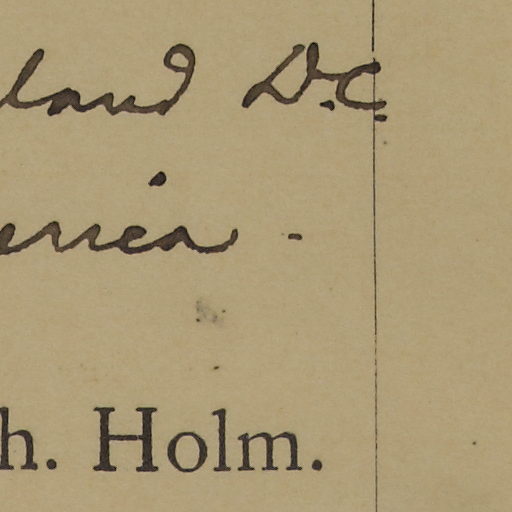 land D.C.
erica -
h. Holm.